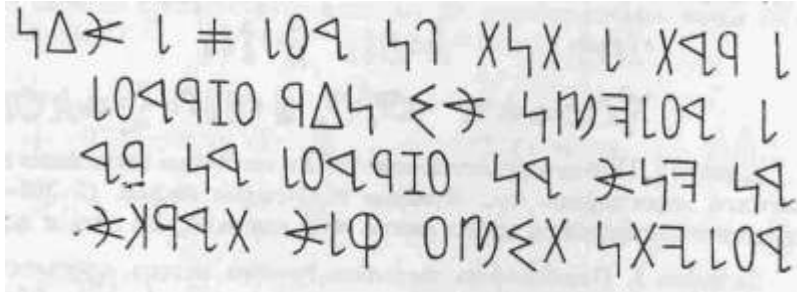 𐤋𐤓𐤁𐤕 𐤋 𐤕𐤍𐤕 𐤐𐤍 𐤁𐤏𐤋 𐤅 𐤋 𐤀𐤃𐤍
𐤋 𐤁𐤏𐤋𐤇𐤌𐤍 𐤀𐤔 𐤍𐤃𐤓 𐤏𐤆𐤓𐤁𐤏𐤋
𐤁𐤍 𐤇𐤍𐤀 𐤁𐤍 𐤏𐤆𐤓𐤁𐤏𐤋 𐤁𐤍
𐤁𐤏𐤋𐤉𐤕𐤍 𐤕𐤔𐤌𐤏 𐤒𐤋𐤀 𐤕𐤁𐤓𐤊𐤀